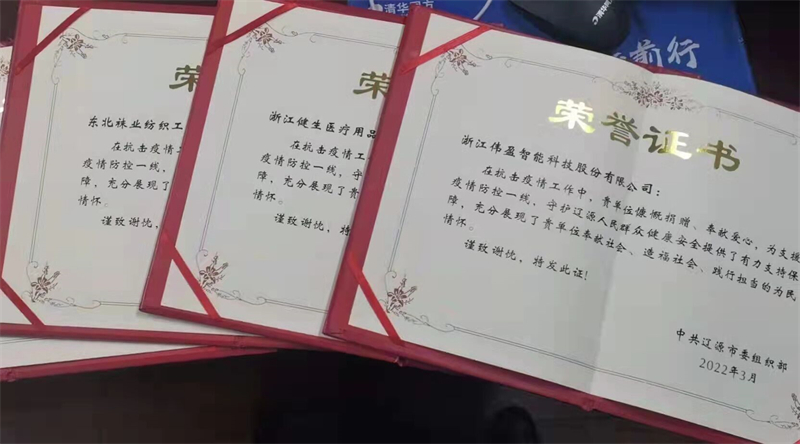 清华
前行
荣
东北袜业纺织工
在抗击疫情工
疫情防控一线，
障，充分展现了
情怀。
谨致谢忱，
荣
浙江健生医疗用品
在抗击疫情工作
疫情防控一线，守
障，充分展现了贵
情怀。
谨致谢忱，特
荣誉证书
浙江伟盈智能科技股份有限公司：
在抗击疫情工作中，贵单位慷慨捐赠、奉献爱心，为支援
疫情防控一线、守护辽源人民群众健康安全提供了有力支持保
障，充分展现了贵单位奉献社会、造福社会、践行担当的为民
情怀。
谨致谢忱，特发此证！
中共辽源市委组织部
2022年3月